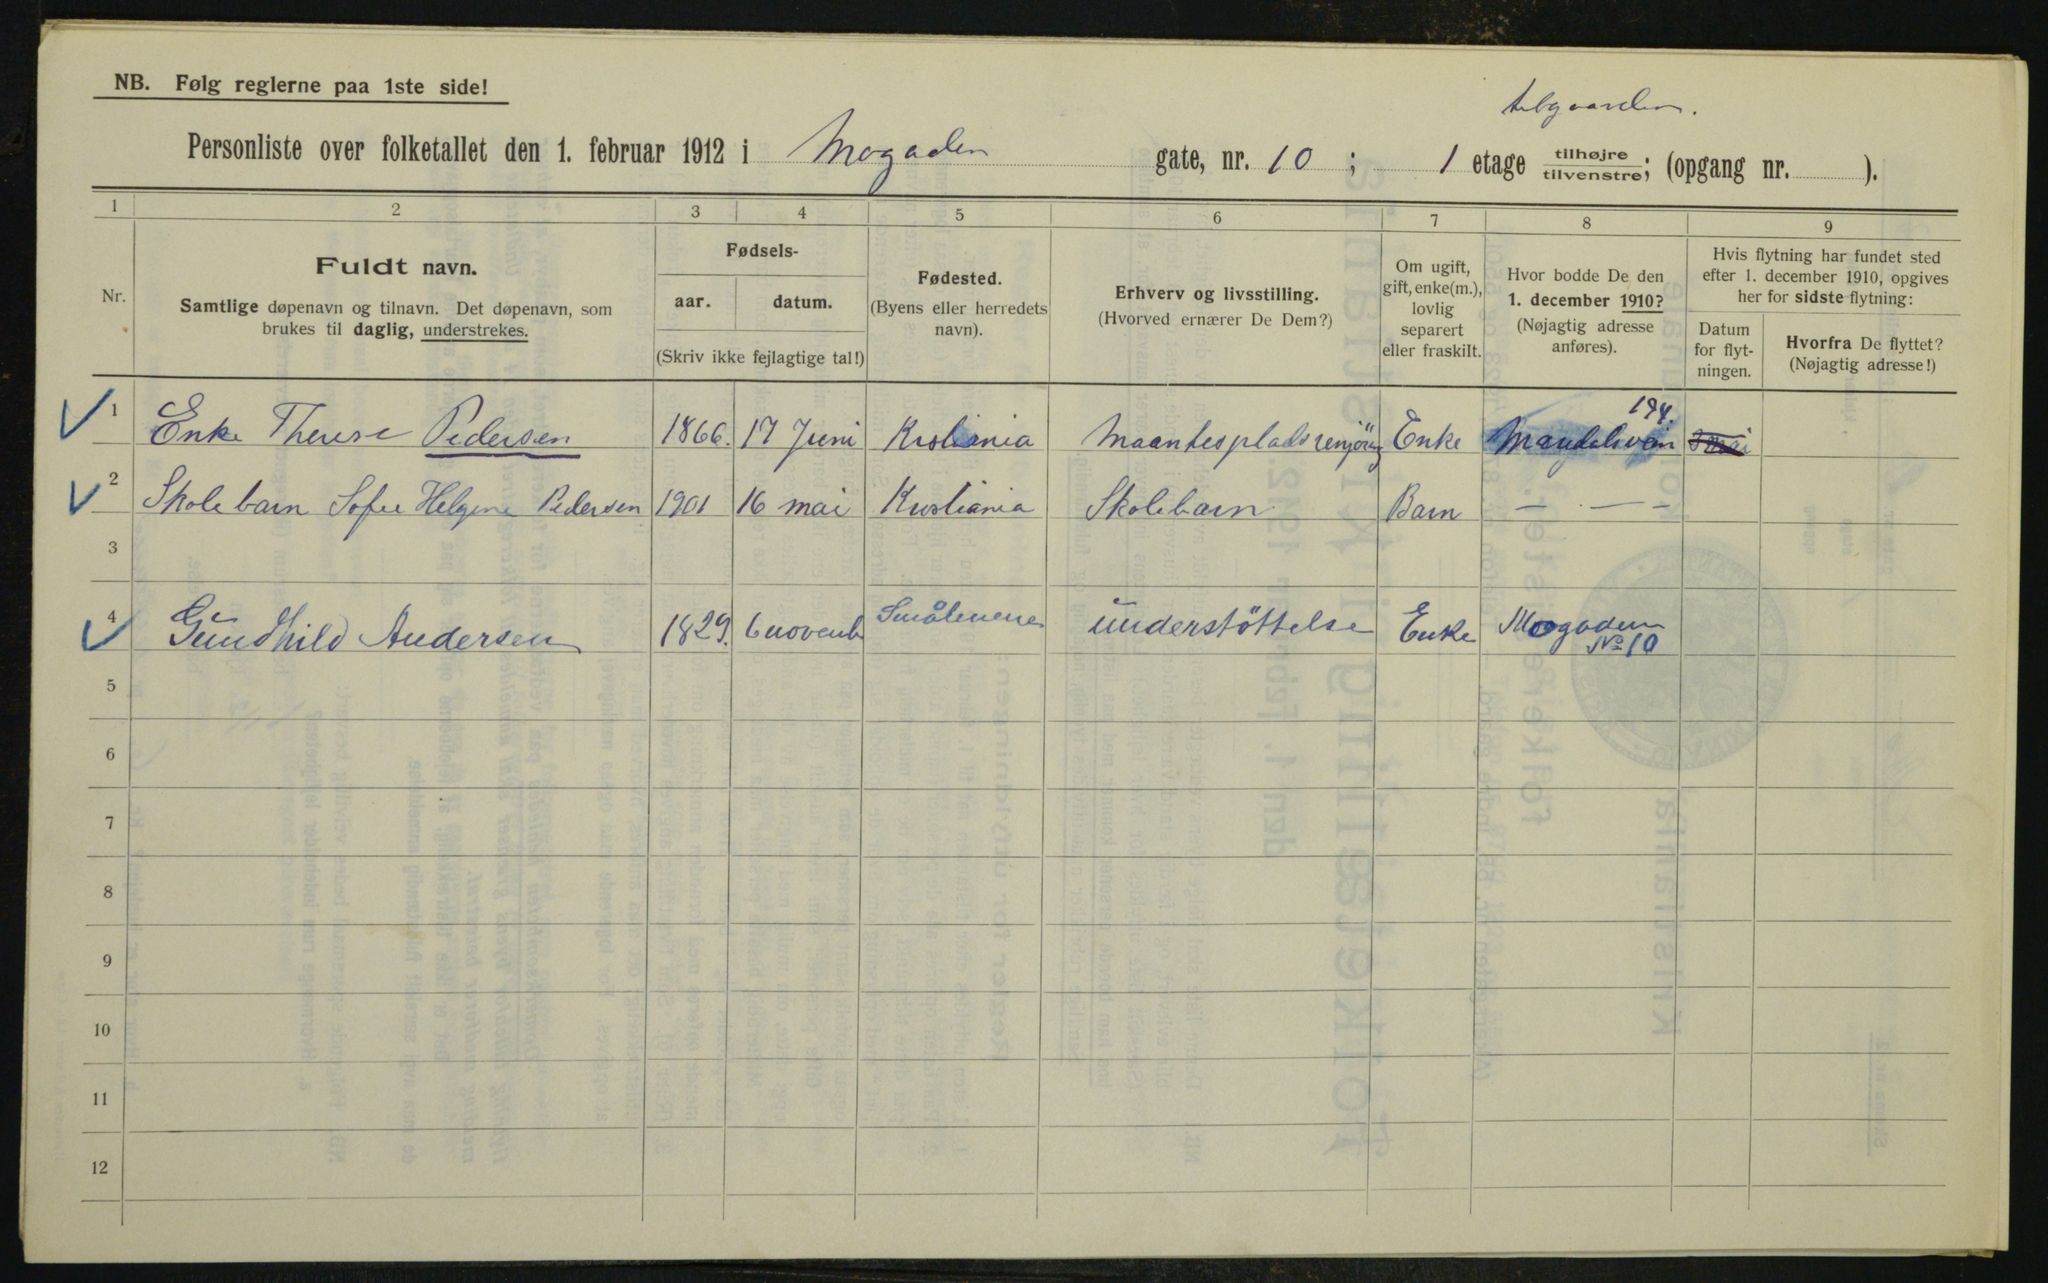 NB. Følg reglerne paa 1ste side!
Personliste over folketallet den 1. februar 1912 i Mogaden gate, nr. 10; 1 etage tilhøjre tilvenstre; (opgang nr. ).
1 2 3 4 5 6 7 8 9
Nr.
Fuldt navn.
Samtlige døpenavn og tilnavn. Det døpenavn, som
brukes til daglig, understrekes.
Fødsels-
aar. datum.
(Skriv ikke fejlagtige tal!)
Fødested.
(Byens eller herredets
navn).
Erhverv og livsstilling.
(Hvorved ernærer De Dem?)
Om ugift,
gift, enke(m.),
lovlig
separert
eller fraskilt.
Hvor bodde De den
1. december 1910?
(Nøjagtig adresse
anføres).
Hvis flytning har fundet sted
efter 1. december 1910, opgives
her for sidste flytning:
Datum
for flyt-
ningen.
Hvorfra De flyttet?
(Nøjagtig adresse!)
194.
1 Enke Therese Pedersen 1866. 17 Juni Kristiania Enke
2 Skolebarn Sofie Helgine Pedersen 1901 16 mai Kristiania Skolebarn Barn — — —
3
4 Gundhild Andersen 1829. 6 novemb Smålenene understöttelse Enke Mogaden
No 10
5
6
7
8
9
10
11
12